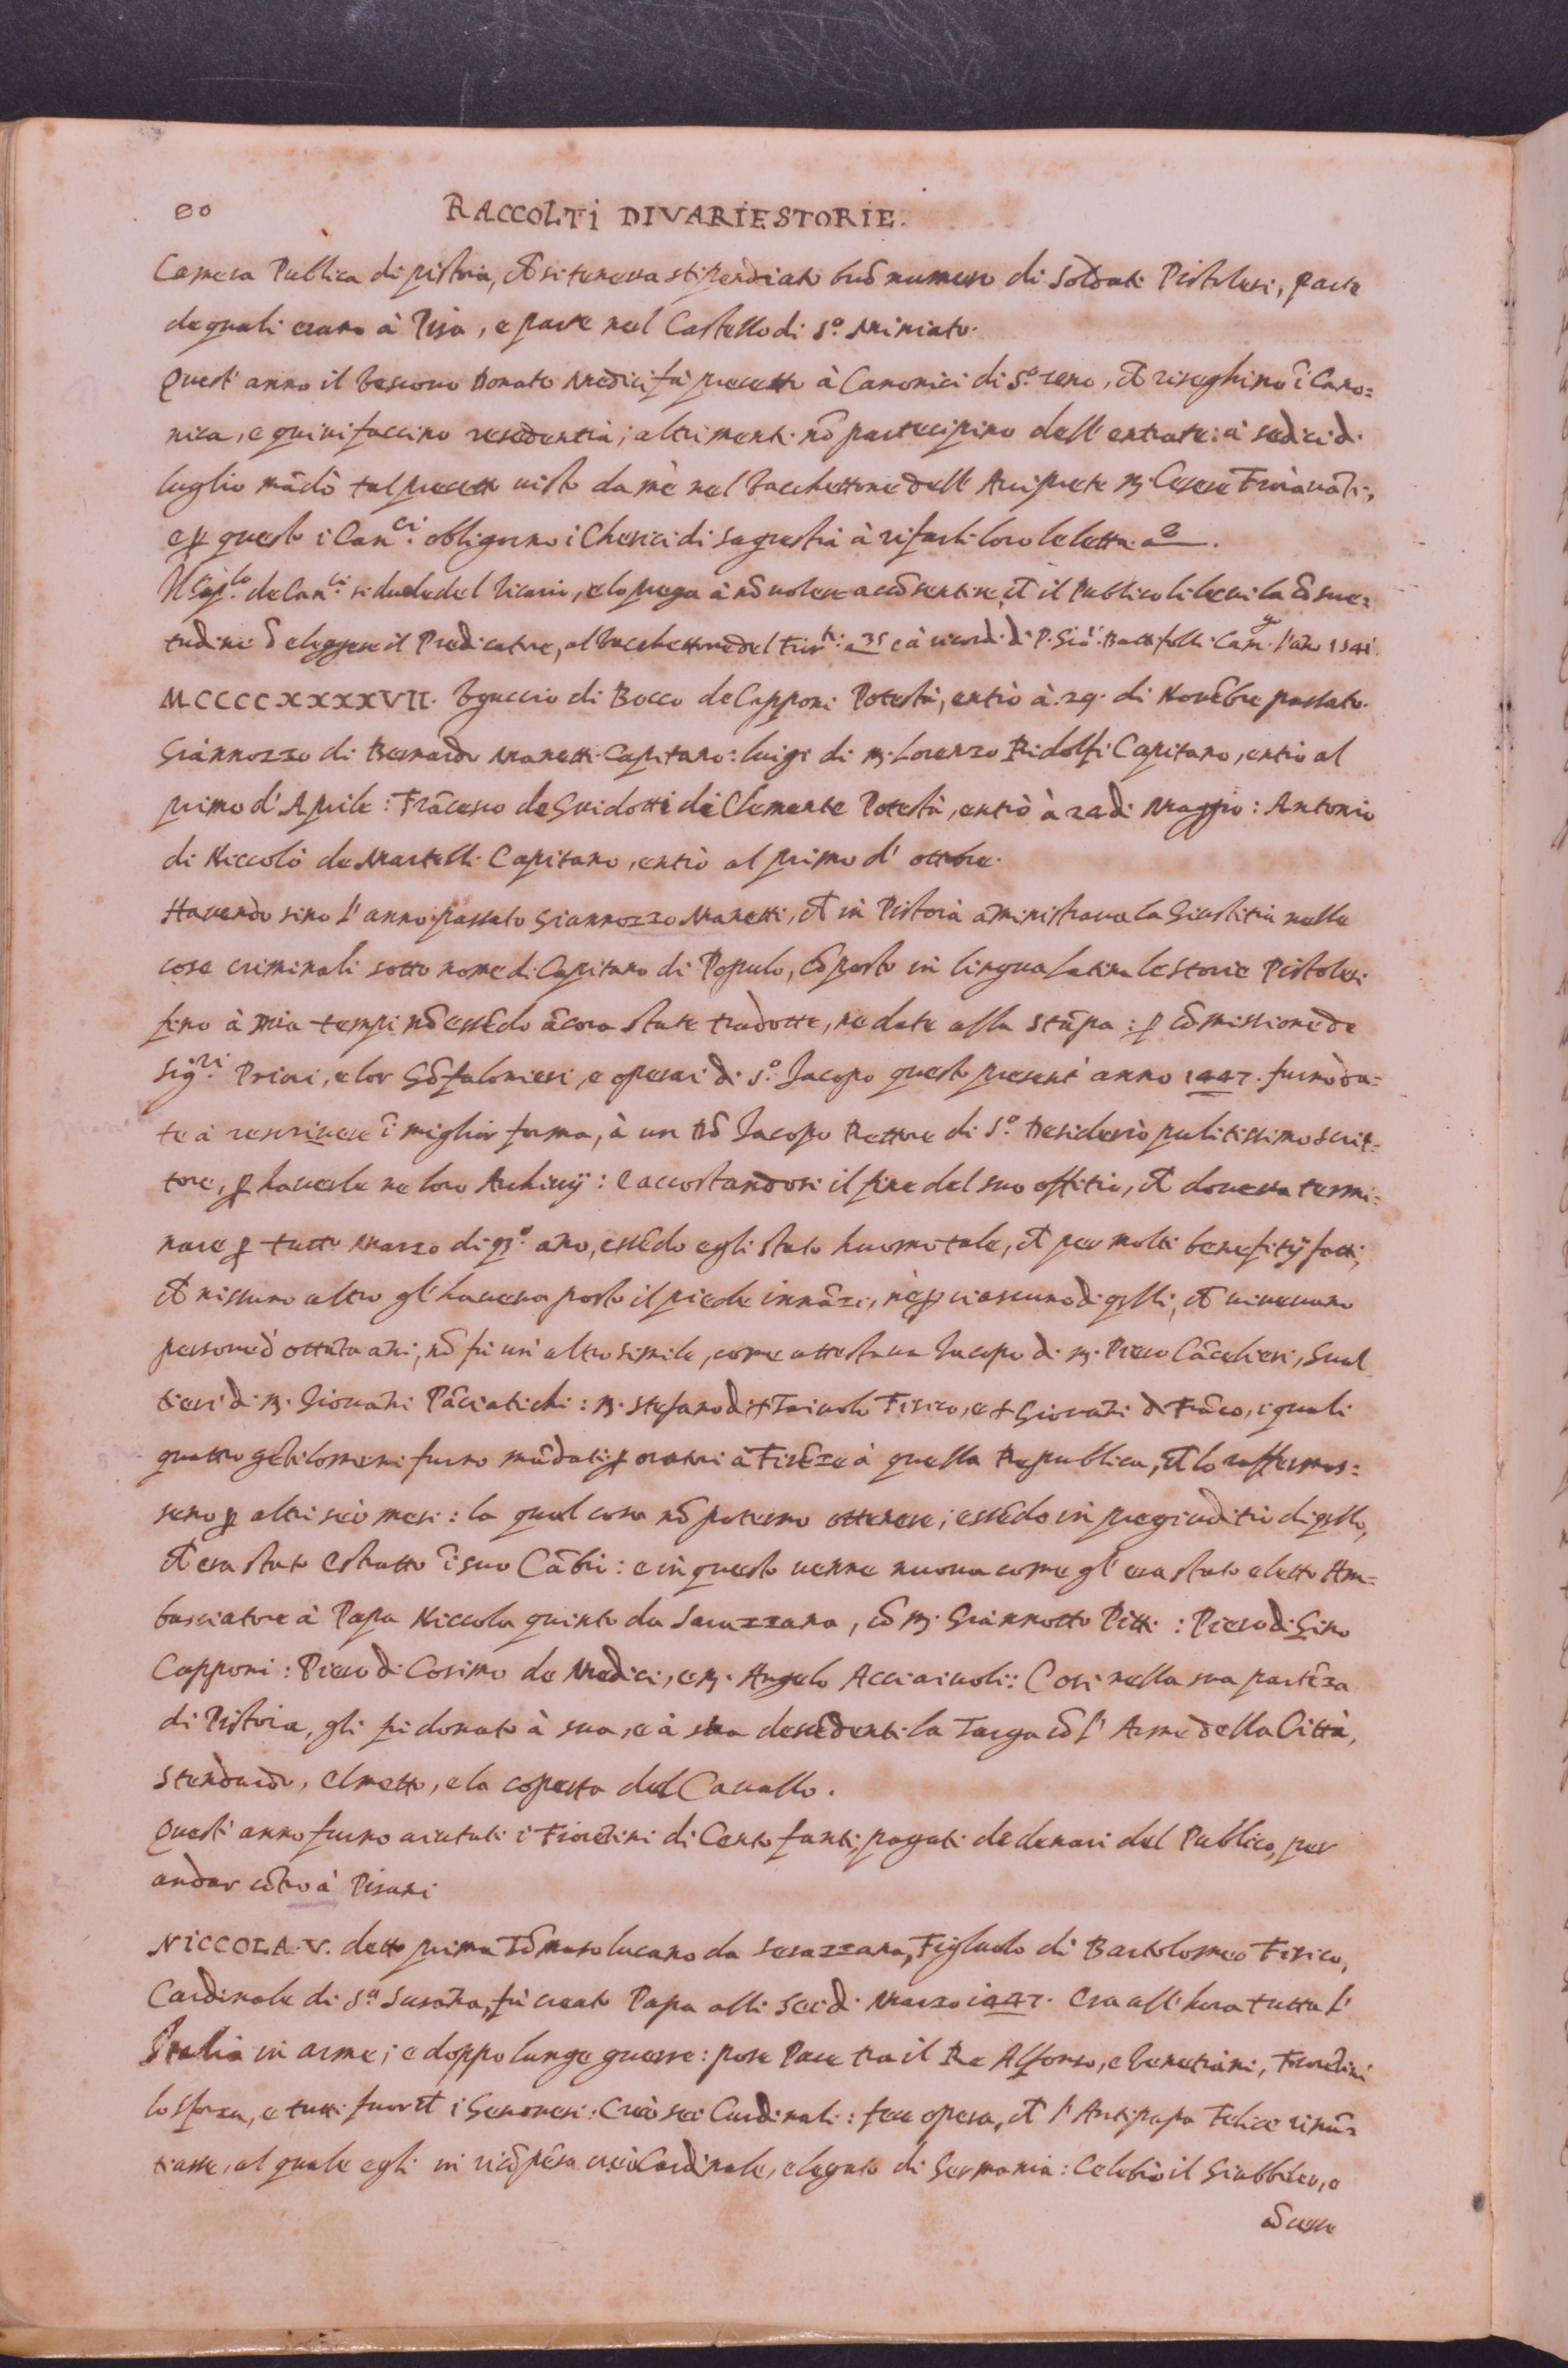 80 RACCOLTI DI VARIE STORIE.
Camera Publica di pistoia, et si teneva stipendiato buõ numero di Soldati Pistolesi, parte
de quali erano à Pisa, e parte nel Castello di S.º Miniato.
Quest' anno il Vescovo Donato Medici fà precetto à Canonici di S.º zeno, et riseghino ĩ Cano=
nica, e quivi faccino residentia; altrimenti nõ partecipino dell' entrate: à sedici di
luglio mãdò tal precetto visto da mè nel bacchettone dell' Arciprete M. Cesere Fioravãti,
e ꝑ questo i Can.ci obligorno i Cherici di sagrestia à rifarli loro le letta a 2.
Il Cap.lo de Can.ci si duole del Vicario, e lo prega à nõ volere accõsentire, et il Publico li levi la cõsue=
tudine d'eleggere il Predicatore, al bacchettone del Fior.ti a 35 e à ricordi di P. Giõ: Batt folli Can. l'año 1541.
MCCCCXXXXVII. Uguccio di Bocco de Capponi Potestà, entrò à 29. di Novẽbre passato.
Giannozzo di Bernardo Manetti Capitano: luigi di M. Lorenzo Ridolfi Capitano, entrò al
primo d' Aprile: Frãcesco de Guidotti di Clemente Potestà, entrò à 24 di Maggio: Antonio
di Niccolò de Martelli Capitano, entrò al primo d' ottobre.
Havendo sino l' anno passato Giannozzo Manetti, et in Pistoia aministrava la Giustitia nelle
cose criminali sotto nome di Capitano di Populo, cõposto in lingua latina le storie Pistolesi
fino à mia tempi nõ essẽdo ãcora state tradotte, ne date alla stãpa: ꝑ cõmissione de
sig.ri Priori, e lor Gõfalonieri, e operai di S.º Jacopo questo present' anno 1447. furno da=
te à rescrivere ĩ miglior forma, à un Dõ Jacopo Rettore di S.º Desiderio pulitissimo scrit=
tore, ꝑ haverle ne loro Archivij: e accostandosi il fine del suo offitio, et doveva termi=
nare ꝑ tutto Marzo di q.º año, essẽdo egli stato huomo tale, et per molti benefitij fatti,
et nissuno altro gl' haveva posto il piede innãzi, nè ꝑ ciascuno di q̃lli, et vivevano
persone d' ottãta ani, nõ fù un' altro simile, come attestava Jacopo di M. Piero Cãcelieri, Gual
tieri di M. Giovãni Pãciatichi: M. Stefano di Taiuolo Fisico, e Giovãni di Frãco, i quali
quattro gẽtilomini furno mãdati ꝑ oratori à Firẽze à quella Republica, et lo raffermas=
seno ꝑ altri sei mesi: la qual cosa nõ poterno ottenere; essẽdo in pregiuditio di q̃llo,
et era stato estratto ĩ suo Cãbio: e in questo venne nuova come gl' era stato eletto Am=
basciatore à Papa Niccola quinto da Sarazzana, cõ M. Giannotto Pitti: Piero di Gino
Capponi: Piero di Cosimo de Medici, e M. Angelo Acciaiuoli: Così nella sua partẽza
di Pistoia, gli fù donato à sua, e à sua descẽdenti la Targa cõ l' Arme della Città,
Stendardo, elmetto, e la coperta del Cavallo.
Quest' anno furno aiutati i Fiorẽtini di Cento fanti, pagati de denari del Publico, per
andar cõtro à Pisani
NICCOLA. V. detto prima Tõmaso lucano da Serazzana, Figliuolo di Bartolomeo Fisico,
Cardinale di S.ª Susãna, fù creato Papa alli sei di Marzo 1447. Era all' hora tutta l'
Italia in arme; e doppo lunge guerre: pose Pace tra il Re Alfonso, e Venetiani, Fiorẽtini
lo sforza, e tutti fuor ch i Genovesi: Creò sei Cardinali: fece opera, et l' Antipapa Felice rinũ=
tiasse, al quale egli in ricõpẽsa creò Cardinale, e legato di Germania: Celebrò il Giubbileo, e
cõcesse